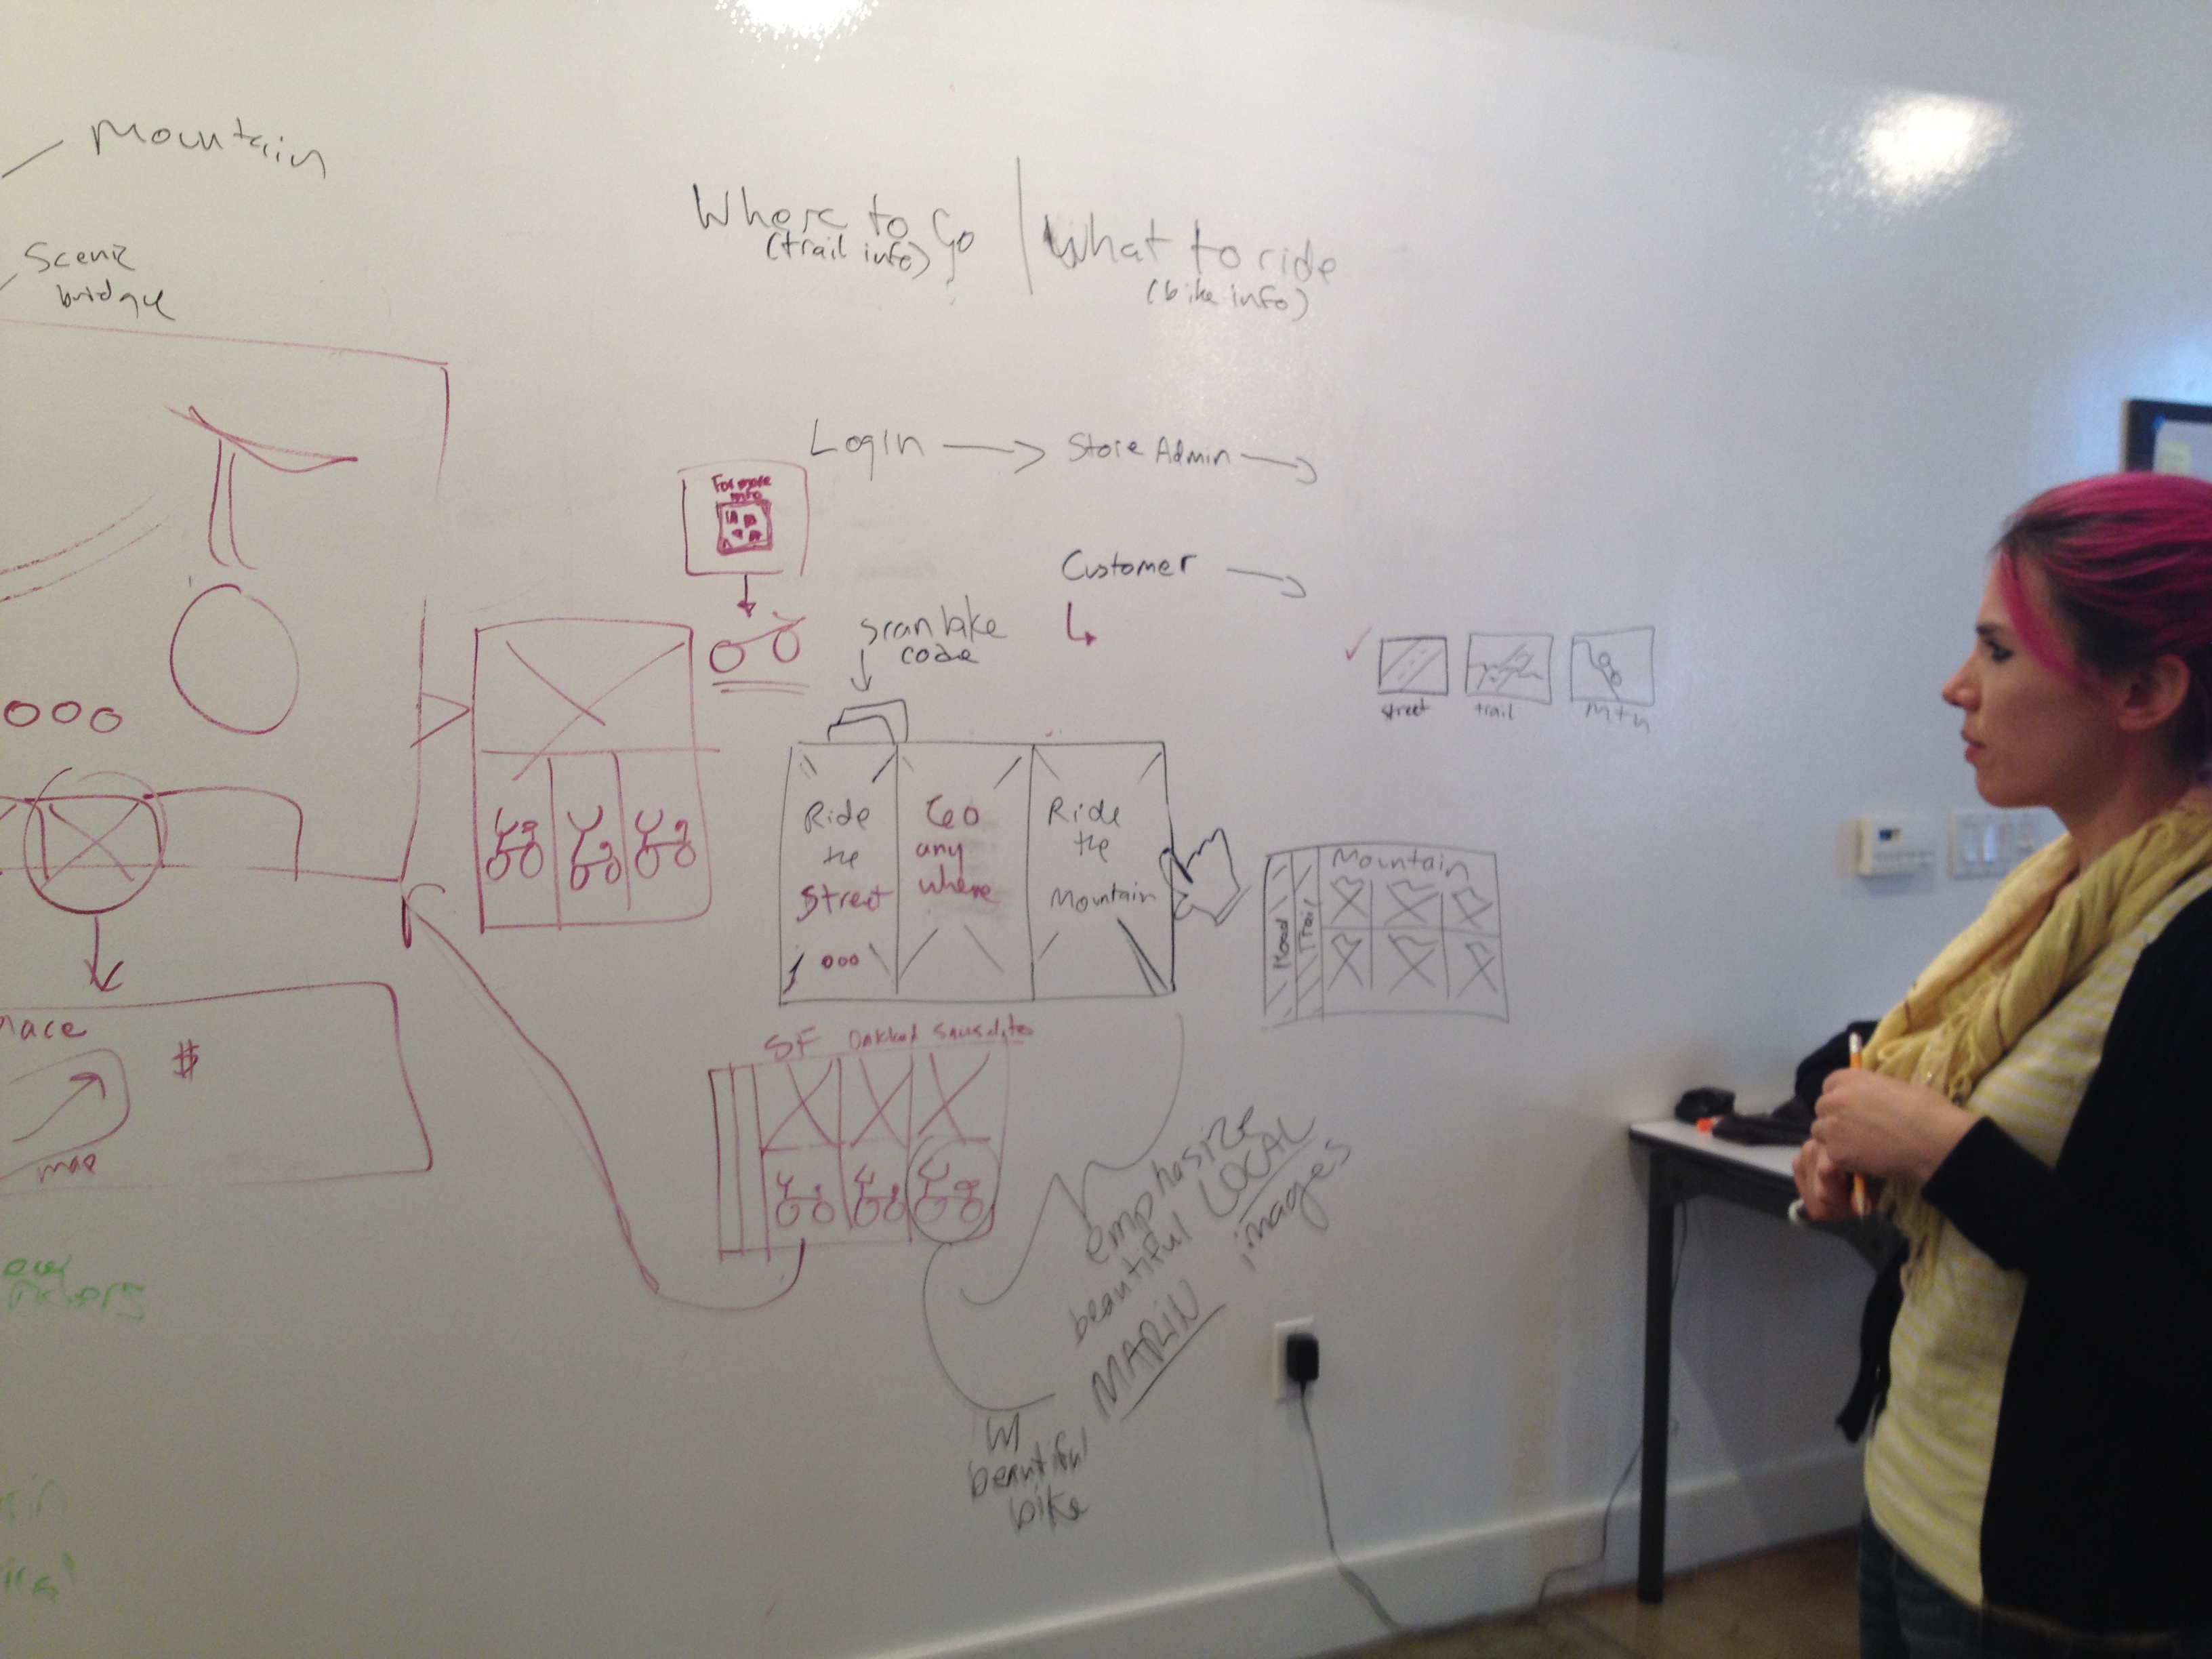 Mountain
Scenic
bridge
Where to Go
(trail info)
What to ride
(bike info)
Login
Store Admin
For more
info
Customer
scan bike
code
street
trail
mtn
Ride
the
Street
Go
any
where
Ride
the
Mountain
Road
Trail
Mountain
SF
Oakland
Sausalito
$
map
emphasize
beautiful LOCAL
MARIN images
W/
beautiful
bike